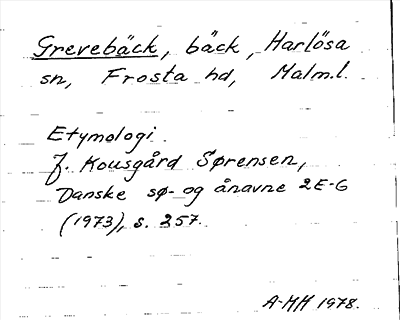 Grevebäck, bäck, Harlösa
sn, Frosta hd, Malm.l.
Etymologi.
J. Kousgård Sørensen,
Danske sø- og ånavne 2E-G
(1973), s. 257.
A-HH 1978.